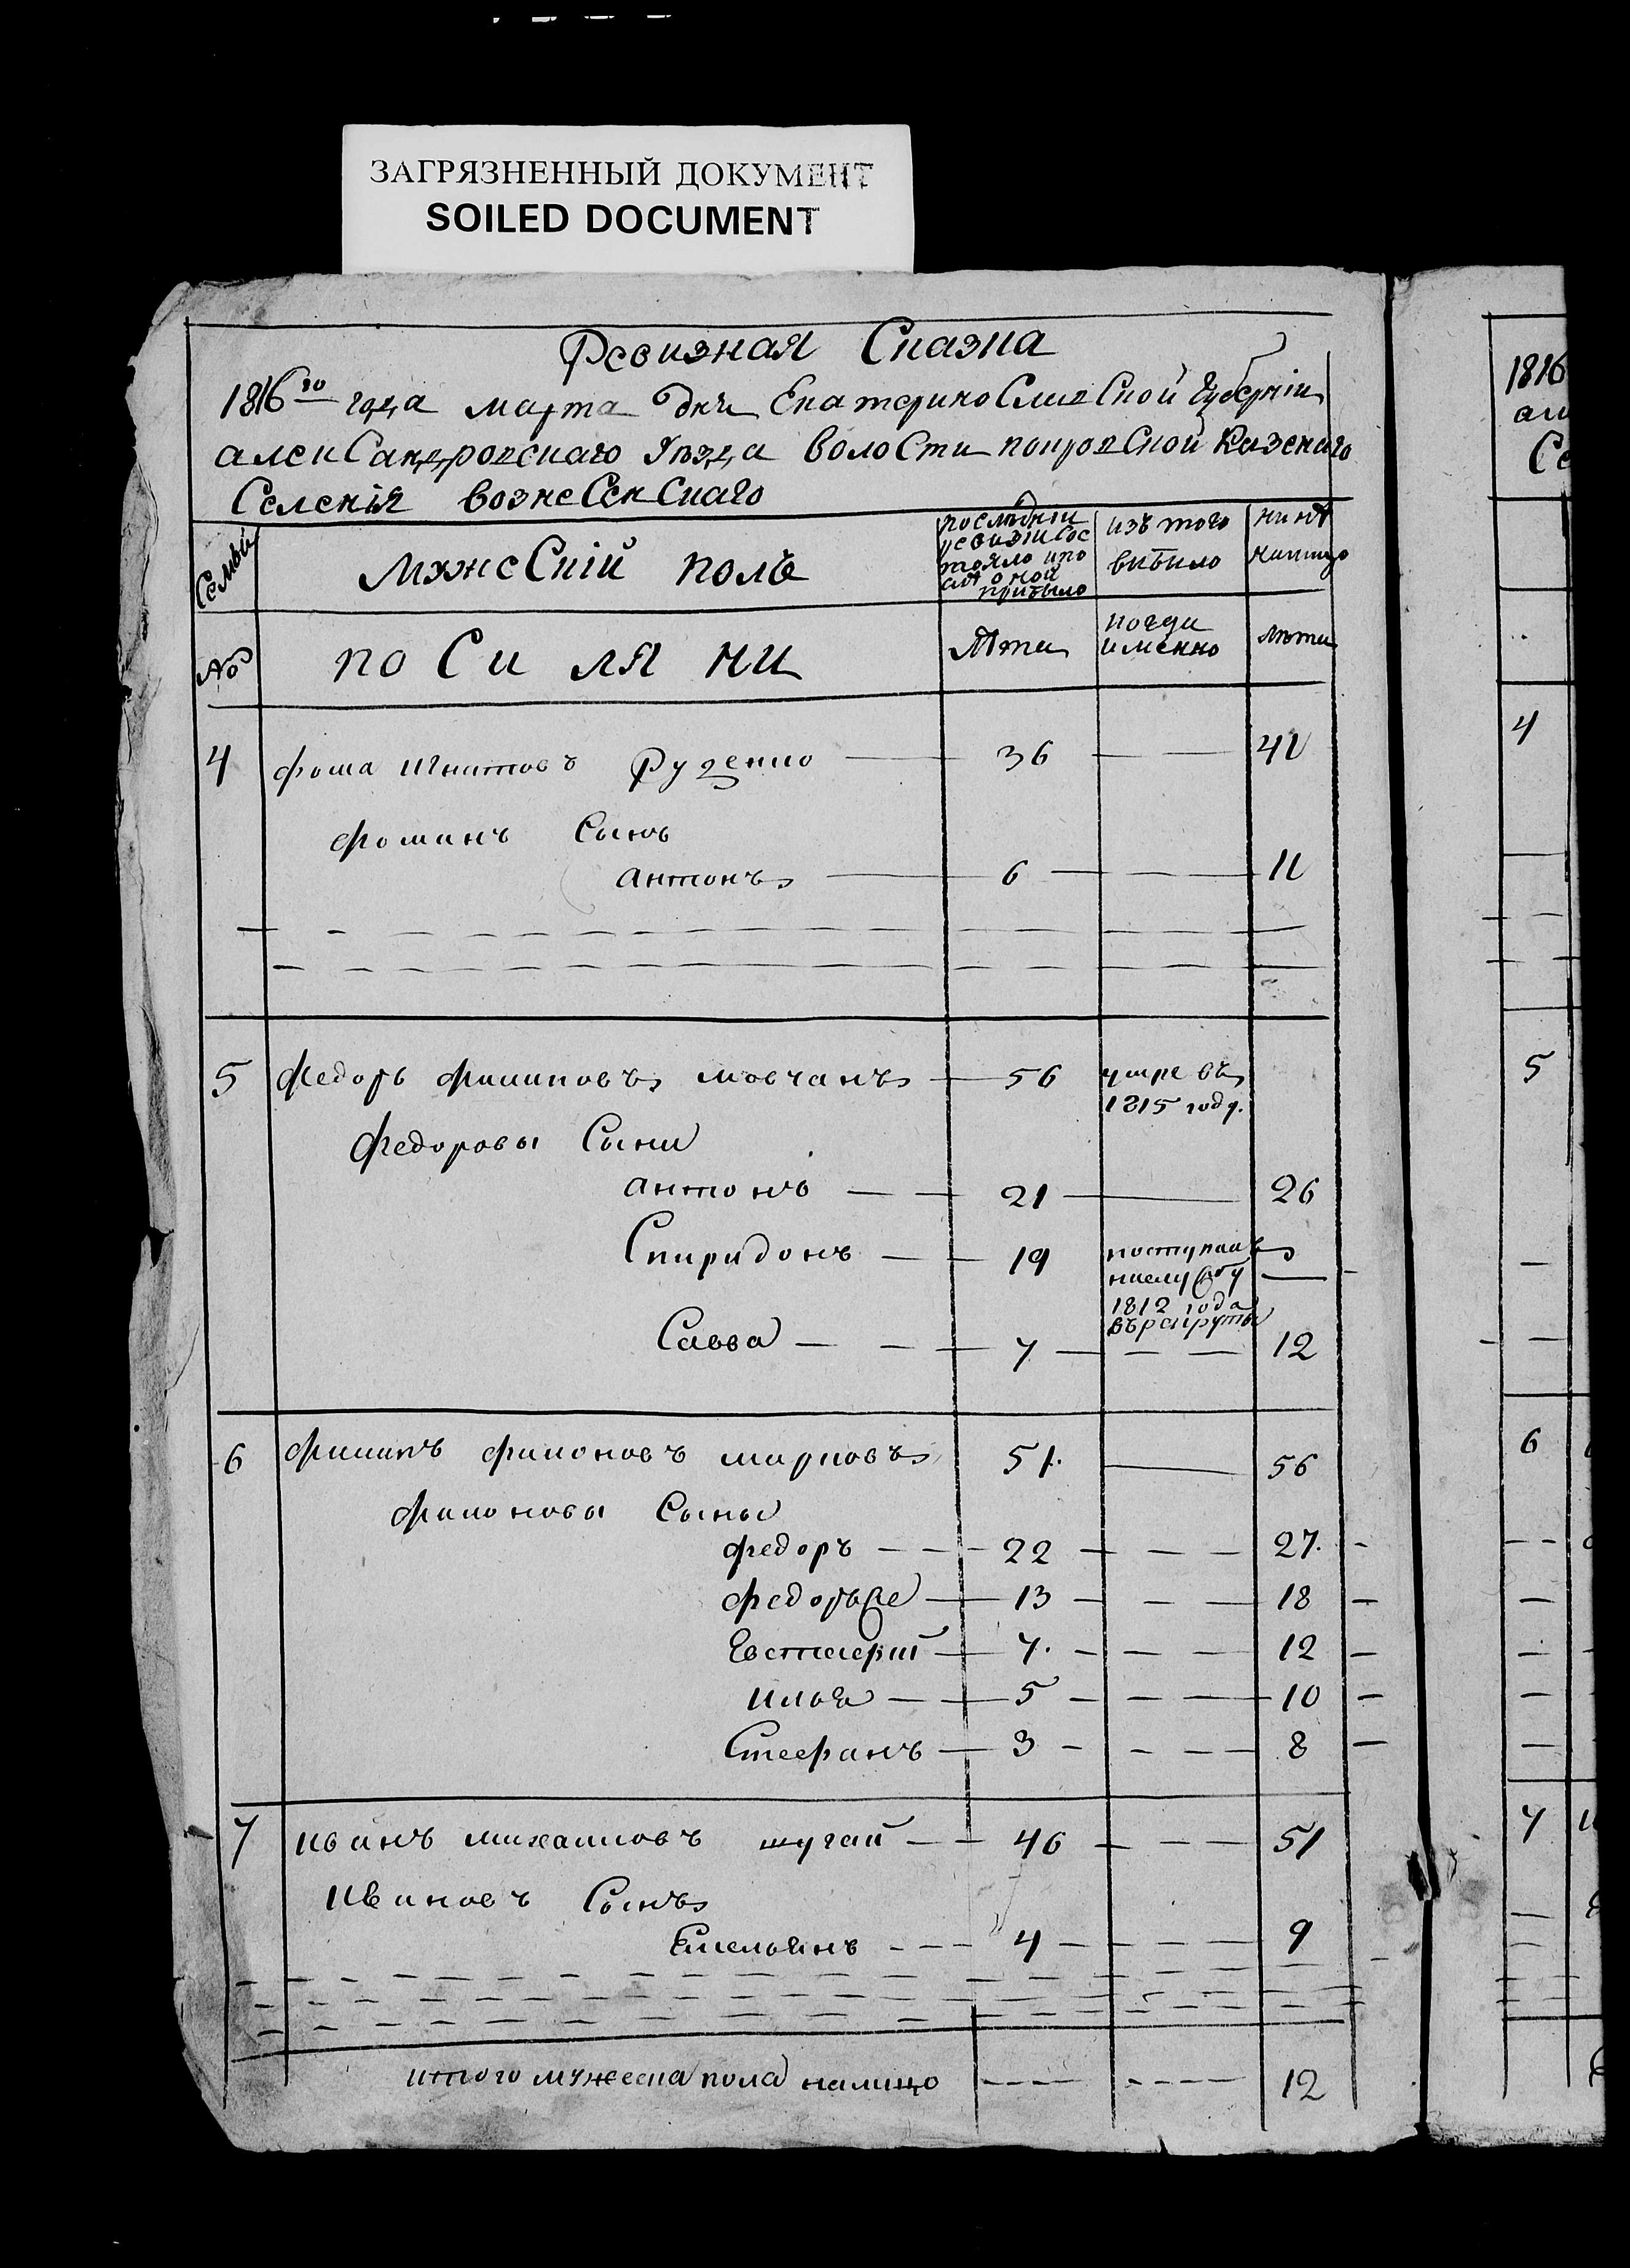 ЗАГРЯЗНЕННЫЙ ДОКУМЕНТ
SOILED DOCUMENT
Ревизная Сказка
1816го года марта дня Екатеринославской Губерніи
александровскаго уѣзда волости покровской Казенаго
Селенія вознесенскаго
Семьи
мужескій полъ
последнеи ревизіи состояло и посля оной прибыло
изъ того выбыло
ныне налицо
№
поселяни
лѣта
когда именно
лѣта
4 фома игнатовъ Руденко — 36 — — 41
фоминъ Сынъ
антонъ — 6 — — 11
5 федоръ филиповъ мовчанъ — 56 умре въ
1815 году.
федоровы Сыни
антонъ — — 21 — 26
Спиридонъ — — 19 поступилъ
—
1812 года
въ рекруты
Савва — — 7 — — — 12
6 филипъ филоновъ марковъ 51. — 56
филоновы Сыны
федоръ — — 22 — — — 27. -
федоръ же — 13 — — — 18 —
Евстафій — 7. - — — 12 —
илья — — 5 — — — 10 —
Стефанъ — 3 — - — — 8 —
7 иванъ михаиловъ шугай — — 46 — — — 51
ивановъ Сынъ
Емельянъ - - - 4 — — — 9
итого мужеска пола налицо - - - - - - - - 12
1816
але
Се
4
5
6
7